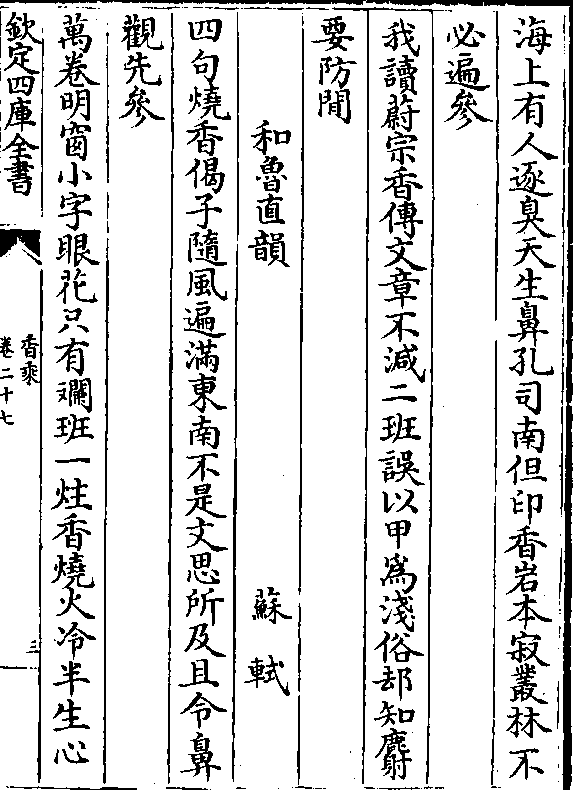 海上有人逐臭天生鼻孔司南但印香岩本寂叢林不
必遍參
我讀蔚宗香傳文章不減二班誤以甲為淺俗却知麝
要防閒
和魯直韻　蘇軾
四句燒香偈子隨風遍滿東南不是文思所及且令鼻
觀先參
萬卷明窗小字眼花只有斕班一炷香燒火冷半生心
欽定四庫全書
香乘
卷二十七
三